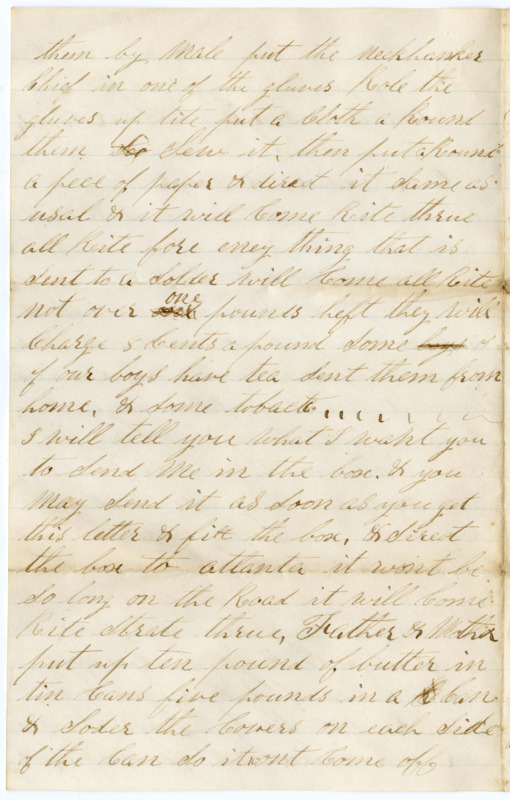 them by Male put the neckhanker
Chief in one of the gluves Role the
gluves up tite put a Cloth a Round
them Sew it, then put a Round
a peec of paper & direct it same as
usal & it will Come Rite threw
all Rite fore eney thing that is
sent to a Solder will Come all Rite
not over one pounds heft they will
Charge 8 Cents a pound Some of
of our boys have tea sent them from
home, & some toback
I will tell you What I waht you
to send Me in the box. & you
May Send it as soon as you get
this letter & fix the box, & direct
the box to atlanta it wont be
So long on the Road it will Come
Rite Strate threw, Father & Mother
put up ten pound of butter in
tin Cans five pounds in a Can
& Soder the Covers on each Side
of the Can So it wont Come off